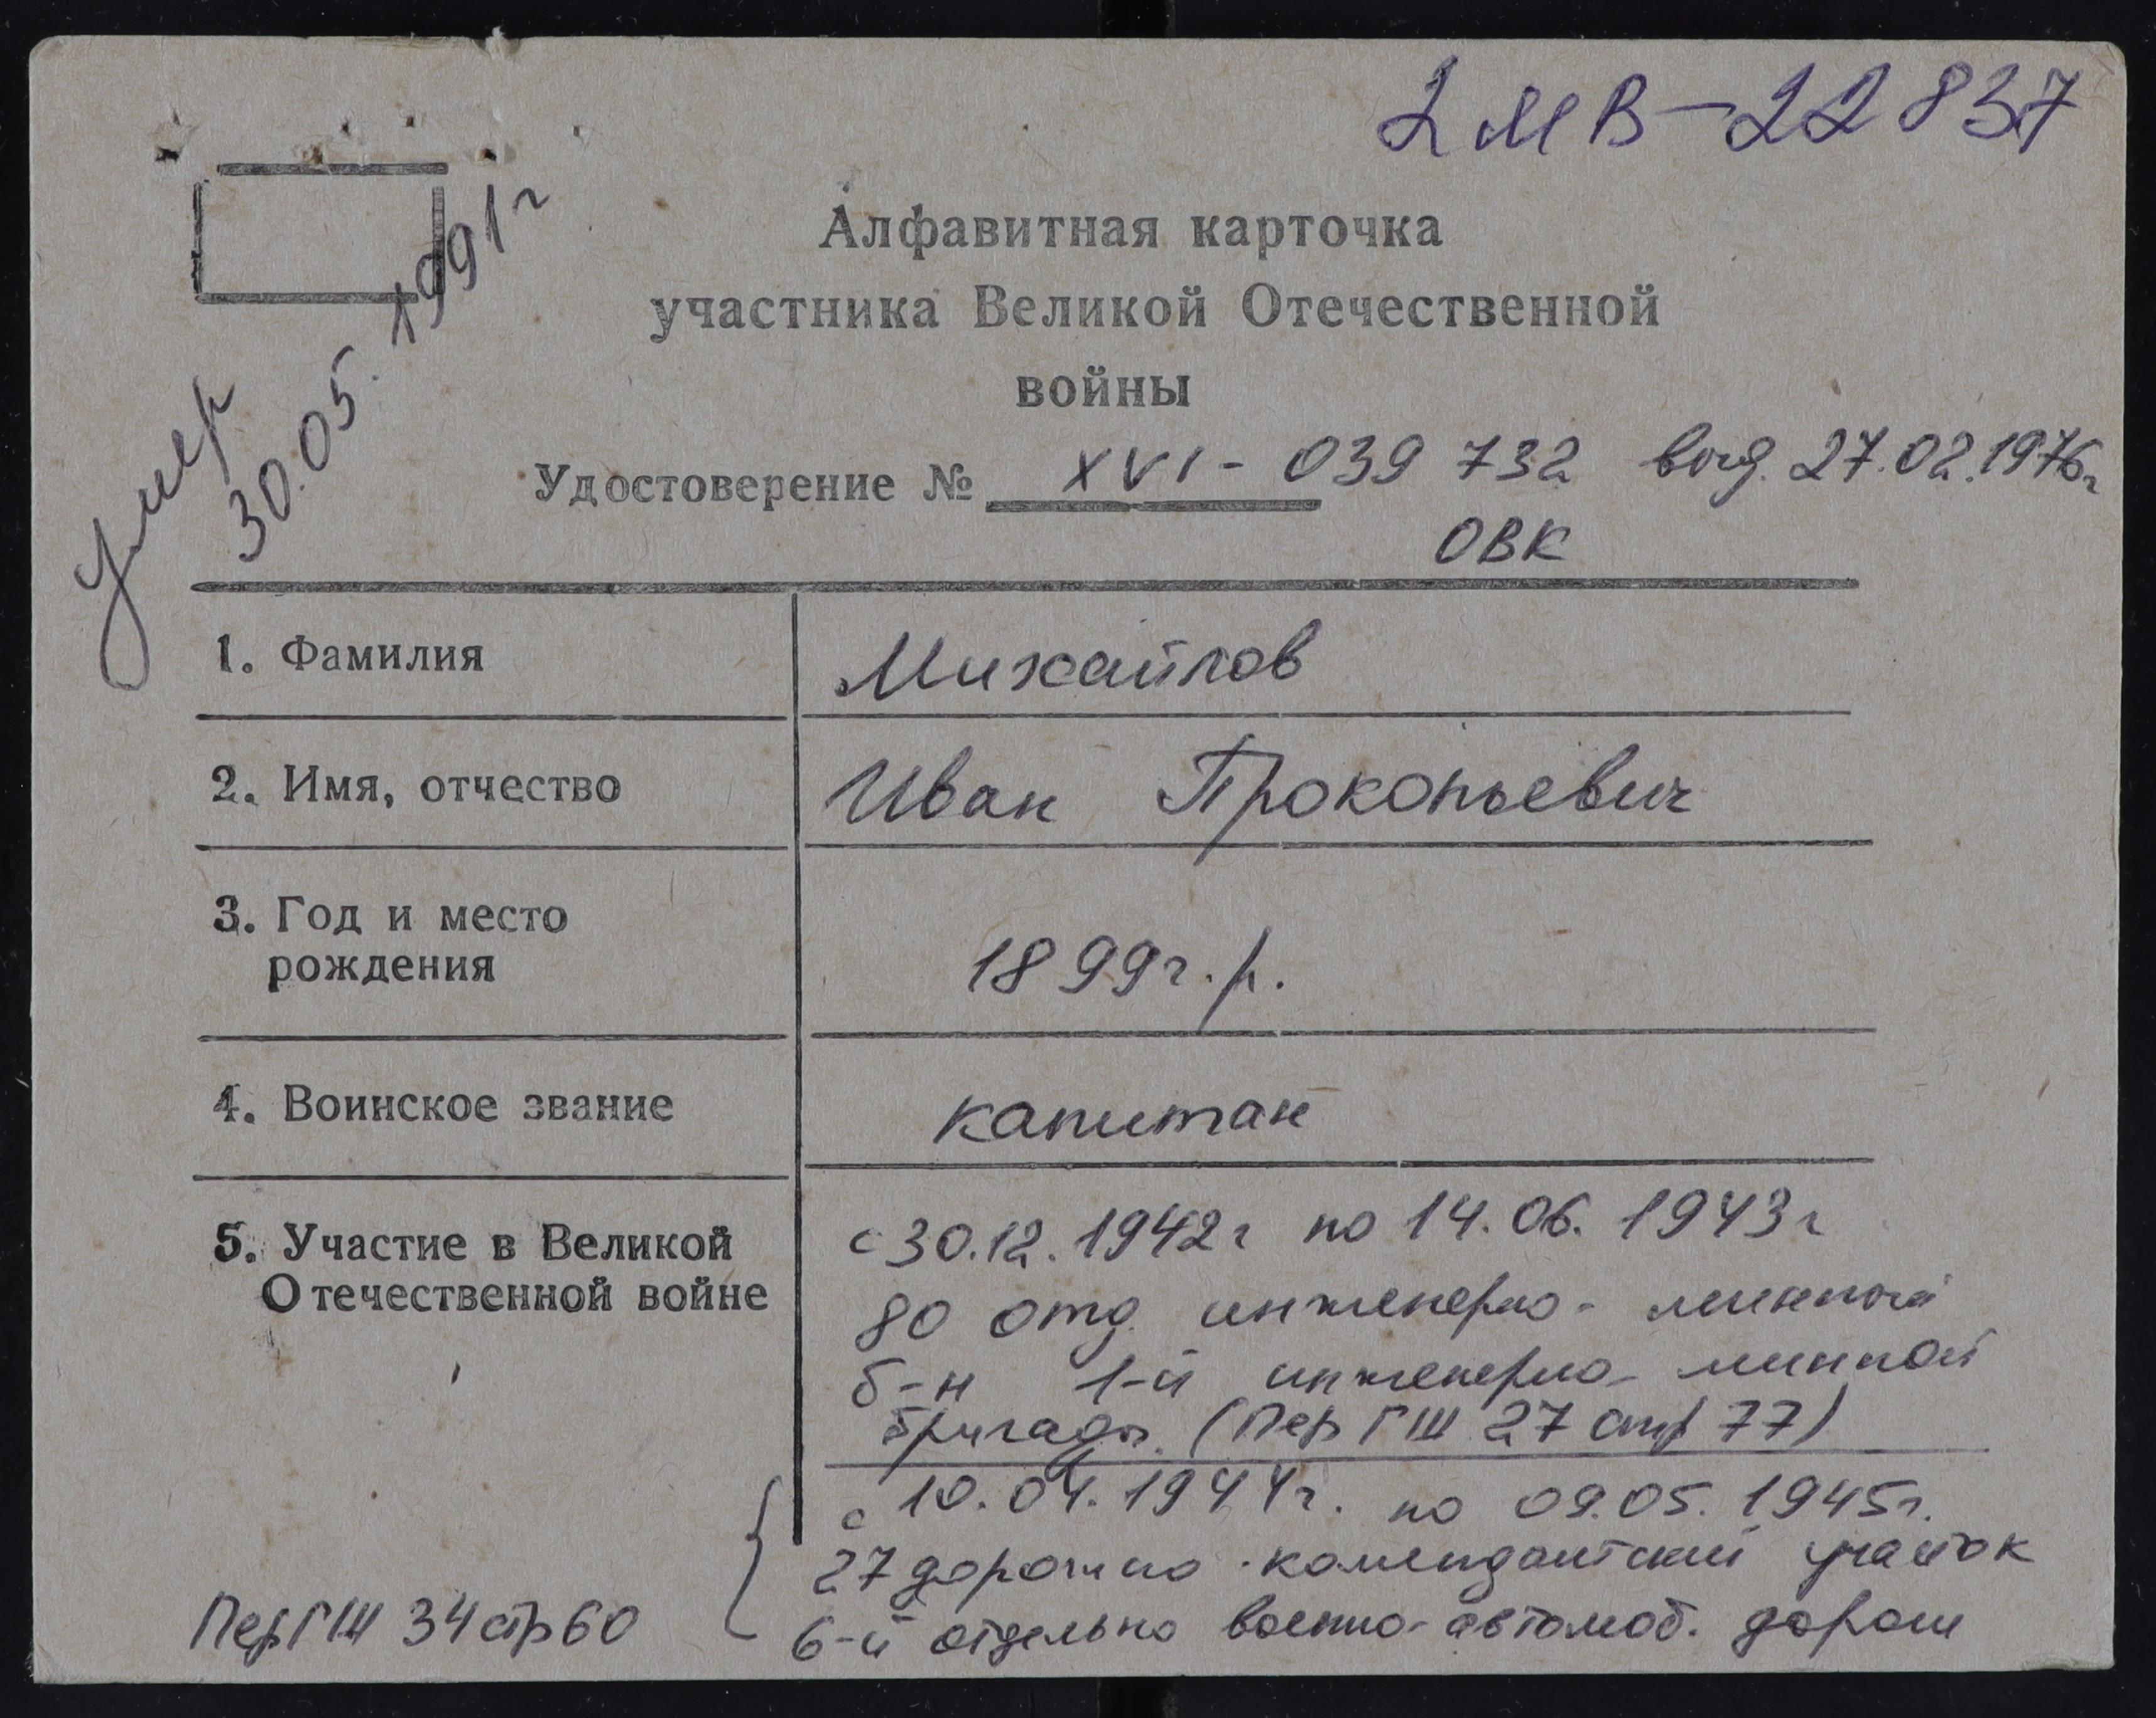 2 МВ-22837
Алфавитная карточка
участника Великой Отечественной
войны
Умер
30.05.1991г
Удостоверение № XVI-039 732 выд. 27.02.1976г
ОВК
1. Фамилия Михайлов
2. Имя, отчество Иван Прокопьевич
3. Год и место
рождения 1899г.р.
4. Воинское звание капитан
5. Участие в Великой
Отечественной войне
с 30.12.1942г по 14.06.1943г
80 отд. инженерно-минной
б-н 1-й инженерно-минной
бригады (Пер ГШ 27 стр 77)
с 10.04.1944г. по 09.05.1945г.
27 дорожно-комендантский участок
6-й отдельно военно-автомоб. дороги
Пер ГШ 34 стр 60